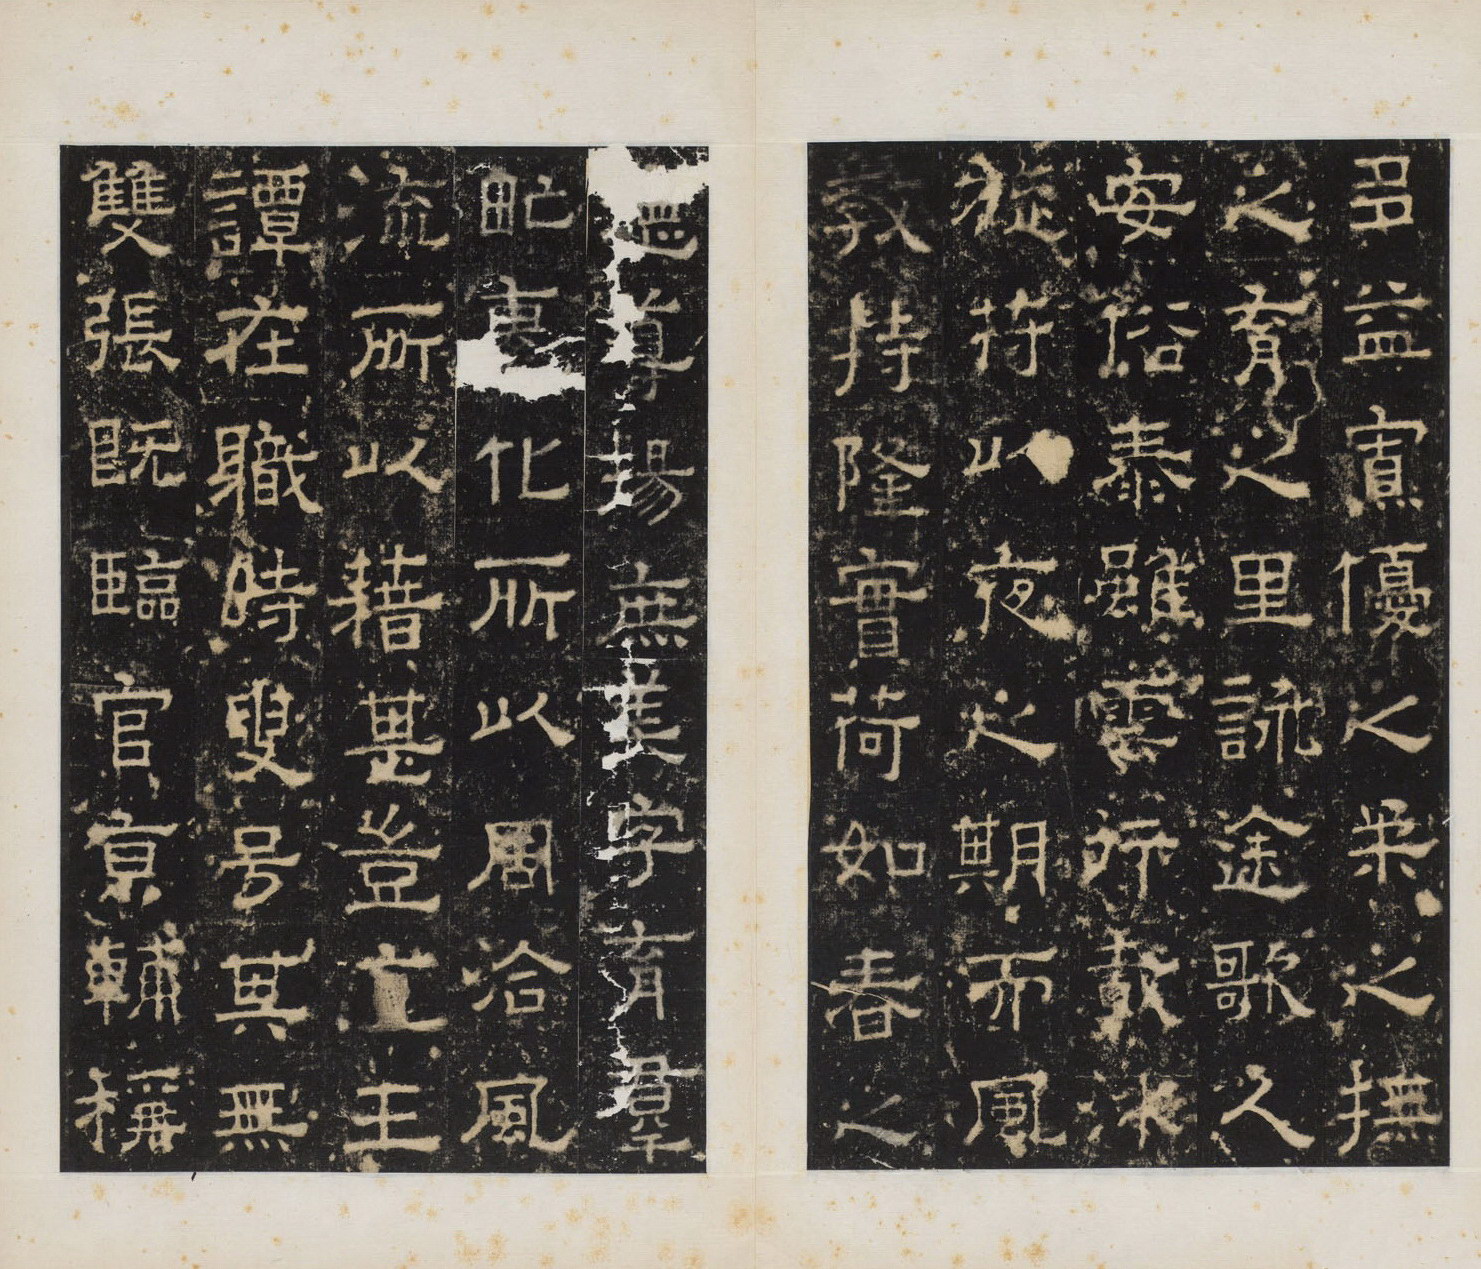 多益寡優之柔之撫
之育之里詠途歌久
安俗泰雖雲行敷沐
旋符以夜之期而風
教持隆實荷如春之
恩尊揚庶美字育羣
甿吏化所以周洽風
流所以藉甚豈直王
譚在職時叟号其無
雙張既臨官京輔稱